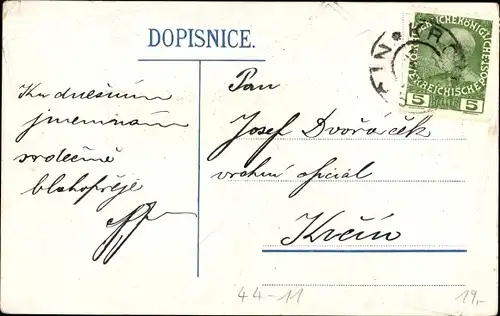 DOPISNICE.
Ku dnešním
jmeninám
srdečně
blahopřeje
Pan
Josef Dvořáček
vrchní oficiál
Krčín
5 HELLER 5
44-11
19,-